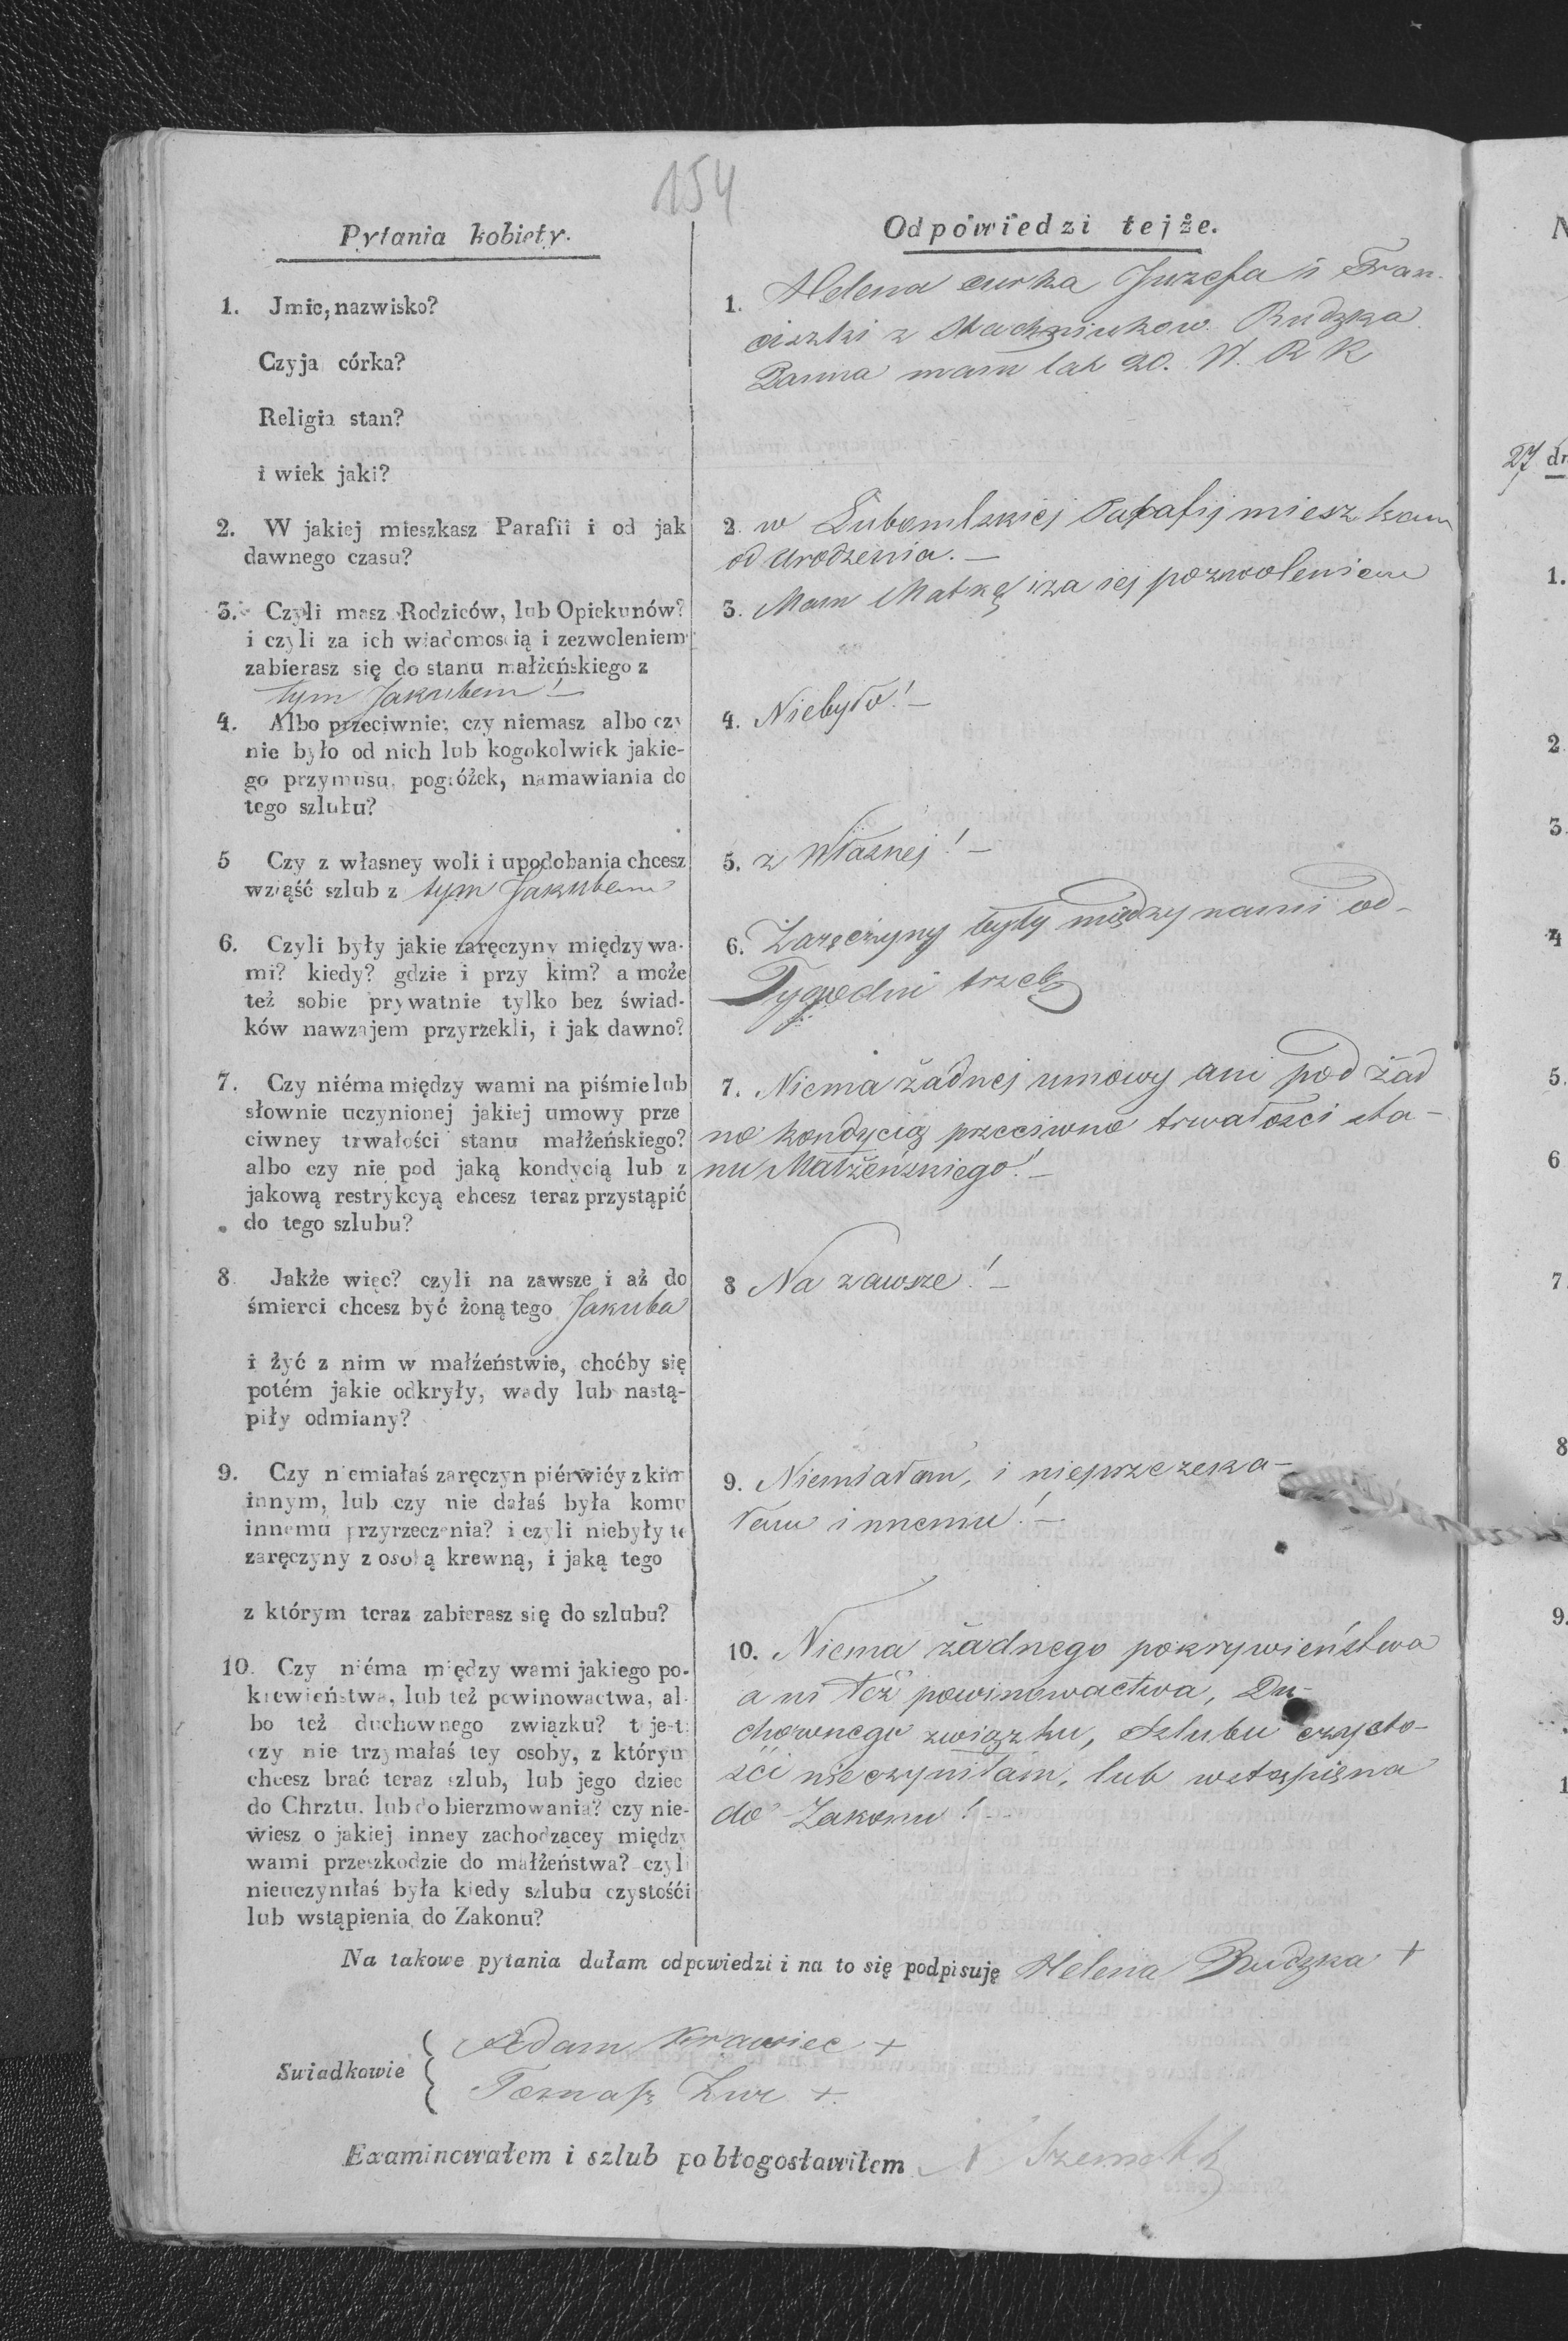 154
Pytania kobiety.
Odpowiedzi tejże.
1. Jmie, nazwisko?
Czyja córka?
Religia stan?
i wiek jaki?
1. Helena curka Juzefa i Fran-
ciszki z Stachniukow Rudzka
Panna mam lat 20. W. R K
2. W jakiej mieszkasz Parafii i od jak
dawnego czasu?
2. w Lubomlskiej Parafij mieszkam
od urodzenia. —
3. Czyli masz Rodziców, lub Opiekunów?
i czyli za ich wiadomością i zezwoleniem
zabierasz się do stanu małżeńskiego z
tym Jakubem! —
3. Mam Matkę i za iej pozwoleniem
4. Albo przeciwnie; czy niemasz albo czy
nie było od nich lub kogokolwiek jakie-
go przymusu, pogróżek, namawiania do
tego szlubu?
4. Niebyło! —
5 Czy z własney woli i upodobania chcesz
wziąść szlub z tym Jakubem
5. z Własnej! —
6. Czyli były jakie zaręczyny między wa-
mi? kiedy? gdzie i przy kim? a może
też sobie prywatnie tylko bez świad-
ków nawzajem przyrzekli, i jak dawno?
6. Zaręczyny były między nami od-
Tygodni trzech
7. Czy niéma między wami na piśmie lub
słownie uczynionej jakiej umowy prze
ciwney trwałości stanu małżeńskiego?
albo czy nie pod jaką kondycią lub z
jakową restrykcyą chcesz teraz przystąpić
do tego szlubu?
7. Niema żadnej umowy ani pod żad
no kondycią przeciwno trwałości sta-
nu Małżeńskiego! —
8. Jakże więc? czyli na zawsze i aż do
śmierci chcesz być żoną tego Jakuba
i żyć z nim w małżeństwie, choćby się
potém jakie odkryły, wady lub nastą-
piły odmiany?
8 Na zawsze! —
9. Czy niemiałaś zaręczyn piérwiéy z kim
innym, lub czy nie dałaś była komu
innemu przyrzeczenia? i czyli niebyły te
zaręczyny z osobą krewną, i jaką tego
z którym teraz zabierasz się do szlubu?
9. Niemiałam, i nieprzezeka-
łam innemu! —
10. Czy niéma między wami jakiego po-
krewieństwa, lub też powinowactwa, al-
bo też duchownego związku? t jest:
czy nie trzymałaś tey osoby, z którym
chcesz brać teraz szlub, lub jego dziec
do Chrztu. lub do bierzmowania? czy nie-
wiesz o jakiej inney zachodzącey między
wami przeszkodzie do małżeństwa? czyli
nieuczyniłaś była kiedy szlubu czystośći
lub wstąpienia do Zakonu?
10. Niema żadnego pokrywieństwa
ani też powinowactwa, Du-
chownego związku, Szlubu czysto-
ści nieczyniłam, lub wstąpięna
do Zakonu! —
Na takowe pytania dałam odpowiedzi i na to się podpisuję Helena Rudzka +
Swiadkowie
Adam Krawiec +
Tomasz Zur +
Examinowałem i szlub pobłogosławiłem
27 dn
1.
2
3.
4
5.
6
7.
8
9.
1